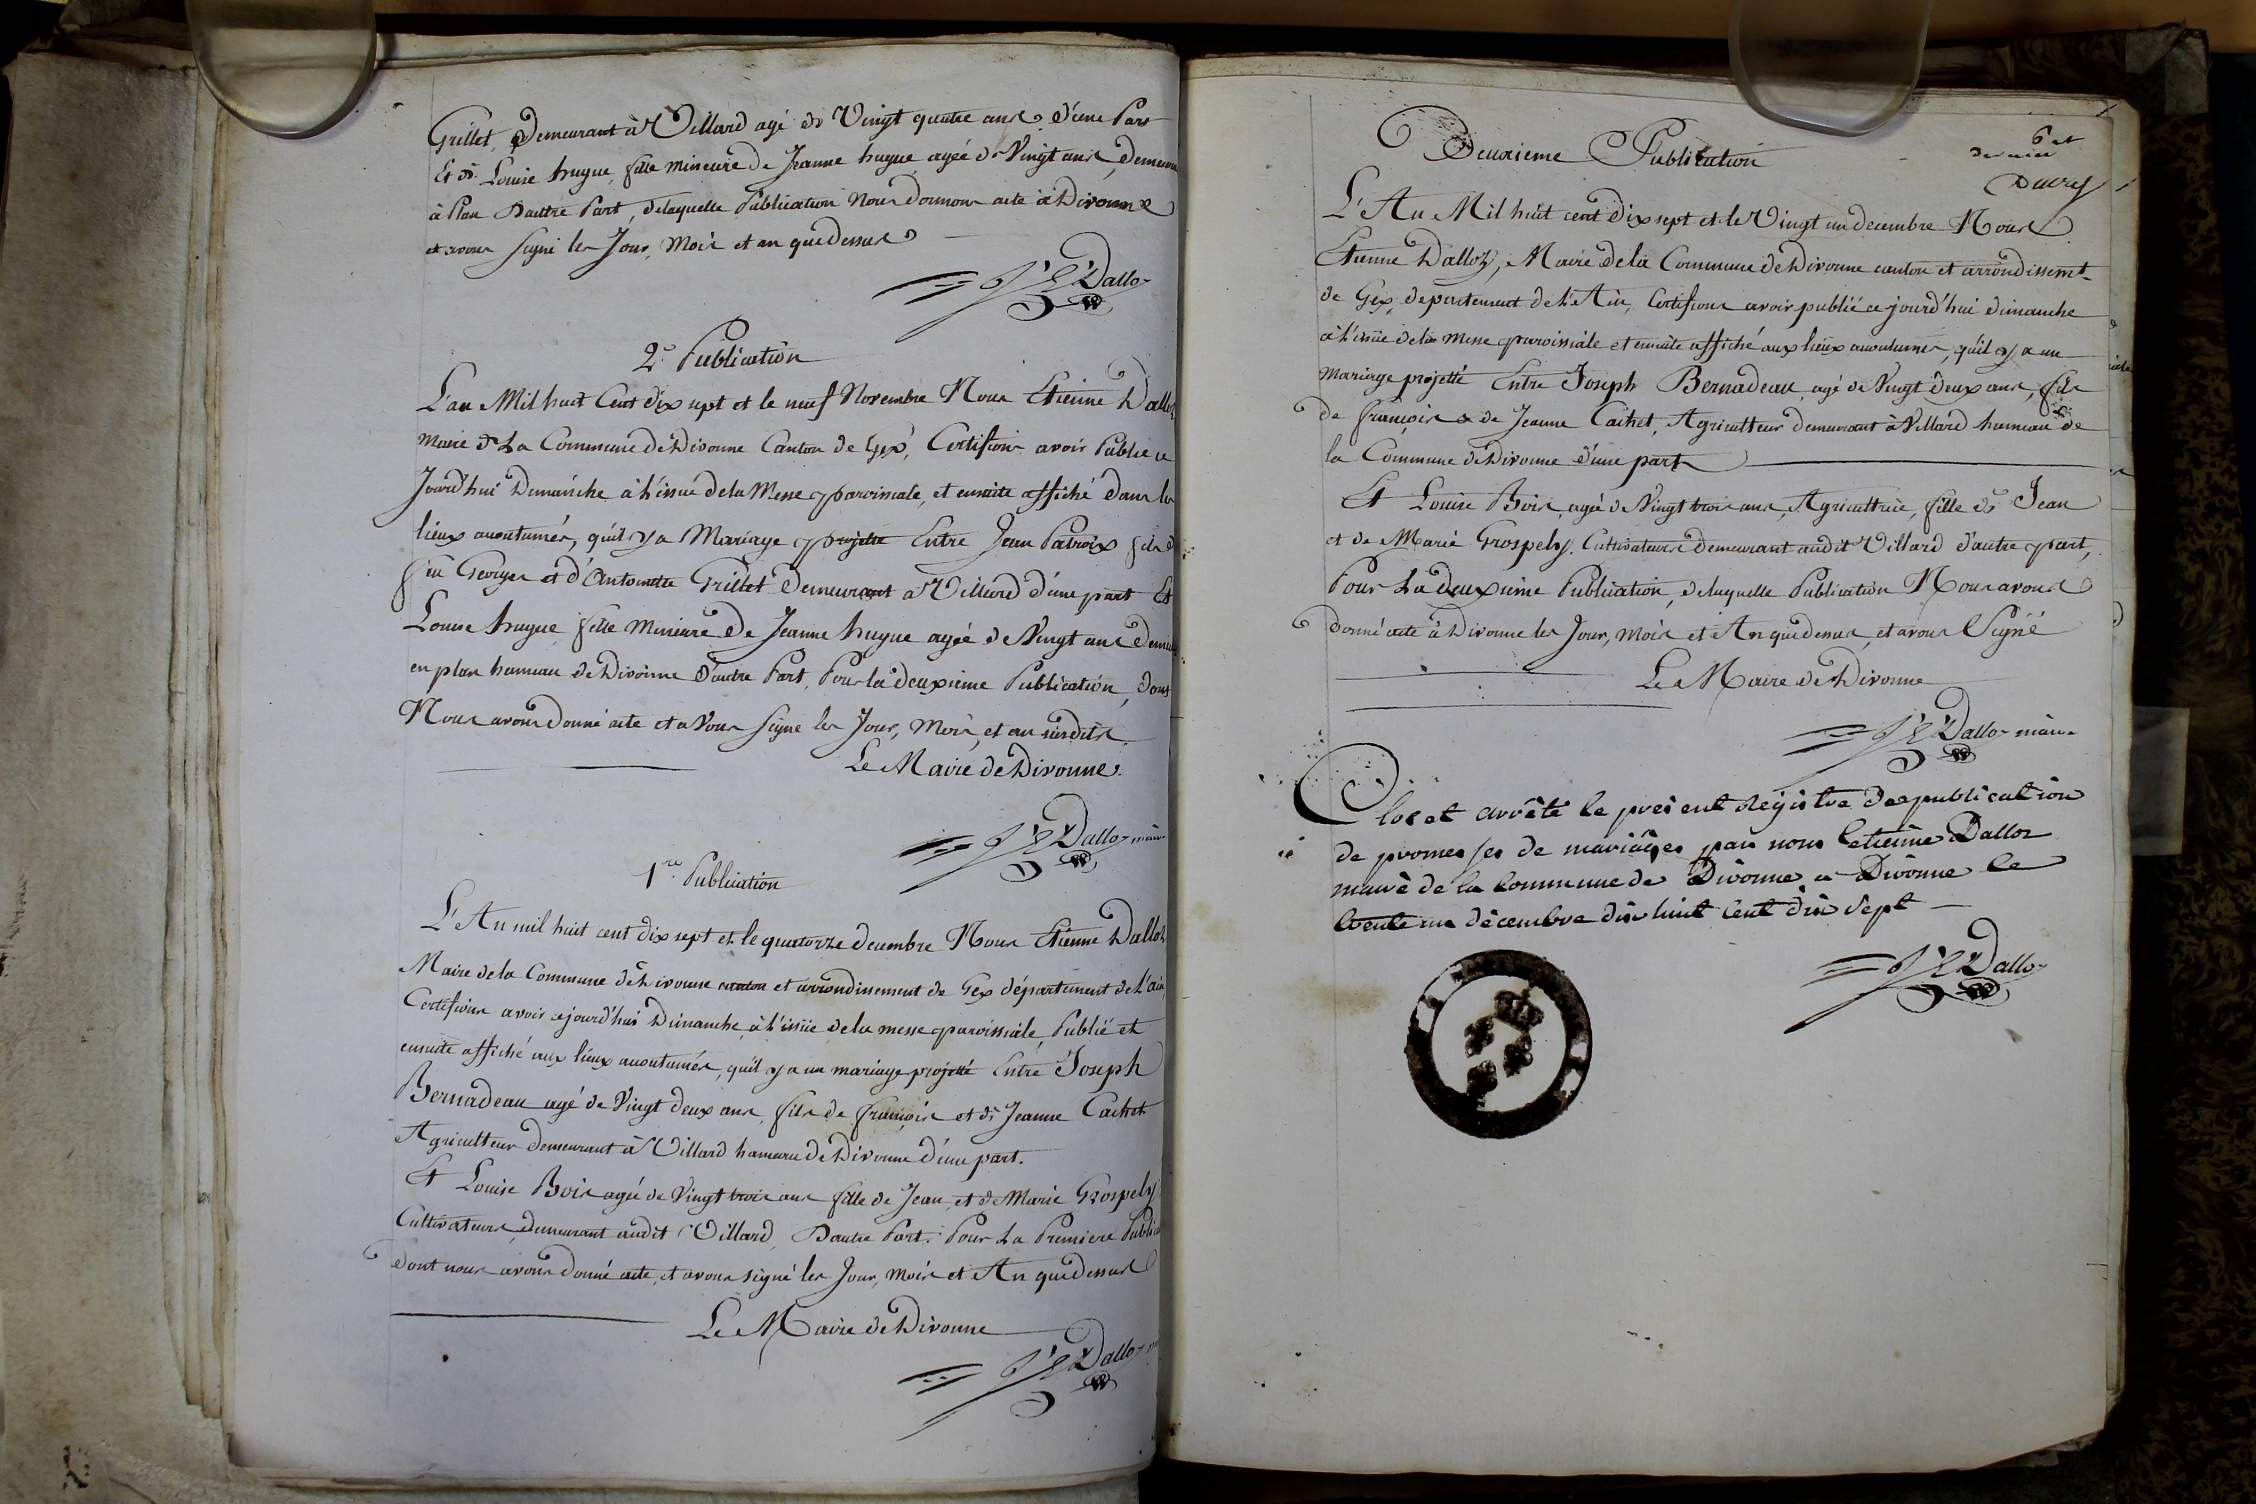 Grillet, Demeurant à Villard agé de Vingt quatre ans d'une Part
Et de Louise hugue, fille mineure de Jeanne hugue, agéé de Vingt ans, demeurant
à Plan Dautre Part, delaquelle Publication Nous donnons acte à Divonne
et avons Signé les Jour, Mois et an que dessus
J E Dalloz
2e Publication
L'an Mil huit Cent dix sept et le neuf Novembre Nous Etienne Dalloz
Maire de La Commune de Divonne Canton de Gex, Certifions avoir Publié ce
Jourd'hui Dimanche à l'issue de la Messe paroissiale, et ensuite affiché dans les
lieux accoutumés, qu'il y a Mariage projetté Entre Jean Patroix fils de
feu Georges et d'Antoinette Grillet Demeurant a Villard d'une part Et
Louise hugue fille Mineure De Jeanne hugue agéé de Vingt ans
en plan hameau de Divonne d'autre Part, Pour la deuxieme Publication, dont
Nous avons donné acte et avons Signé les Jour, Mois, et an susdits.
Le Maire de Divonne.
J E Dalloz maire
1re Publication
L'An mil huit cent dix sept et le quatorze decembre Nous Etienne Dalloz
Maire de la Commune de Divonne canton et arrondissement de Gex département de l'ain,
Certifions avoir cejourd'hui Dimanche, à l'issüe de la messe paroissiale, Publié et
ensuite affiché aux lieux accoutumés, qu'il y a un mariage projetté Entre Joseph
Bernadeau agé de Vingt deux ans, fils de françois et de Jeanne Cachet
Agriculteur demeurant à Villard hameau de Divonne d'une part.
Et Louise Bois agéé de Vingt trois ans fille de Jean, et de Marie Grospely
Cultivateurs, demeurant audit Villard, Dautre Part. Pour La Premiere
dont nous avons donné acte, et avons signé les Jour, Mois et An que dessus
Le Maire de Divonne
J E Dalloz
6 et
dernier
Deuxieme Publication
L'An Mil huit cent dix sept et le Vingt un decembre Nous
Etienne Dalloz, Maire de la Commune de Divonne canton et arrondissemt
de Gex, departement de l'Ain, Certifions avoir publié ce jourd'hui dimanche
à l'issüe de la Messe paroissiale et ensuite affiché aux lieux accoutumés, qu'il y a un
Mariage projetté Entre Joseph Bernadeau, agé de Vingt deux ans, fils
de françois & de Jeanne Cachet, Agriculteur demeurant à Villard hameau de
la Commune de Divonne d'une part
Et Louise Bois, agéé de Vingt trois ans, Agricultrice, fille de Jean
et de Marie Grospely, Cultivateurs demeurant audit Villard d'autre part,
Pour La deuxieme Publication, delaquelle Publication Nous avons
donné acte à Divonne les Jour, Mois et An que dessus, et avons Signé
Le Maire de Divonne
J E Dalloz maire
Clos et arrêté le present Registre de publication
de promesses de mariages par nous Etienne Dalloz
maire de la Commune de Divonne a Divonne le
trente un décembre dix huit Cent dix Sept
J E Dalloz